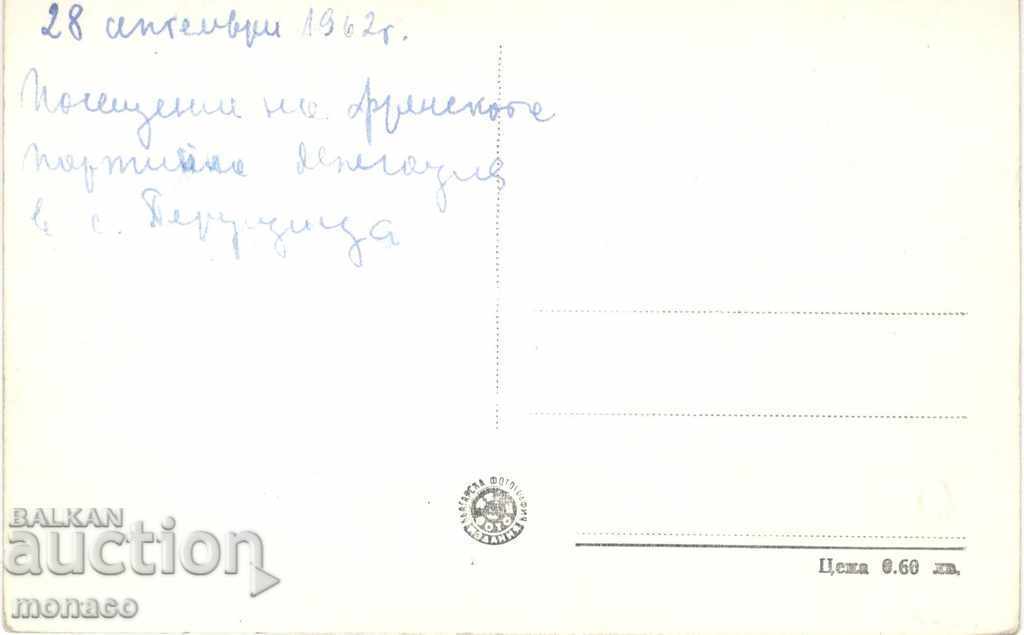 28 септември 1962 г.
Посещени на френската
партийна делегация
в с. Перущица
БЪЛГАРСКА ФОТОГРАФИЯ
ФОТО
ИЗДАНИЕ
Цена 0.60 лв.
BALKAN
auction
monaco